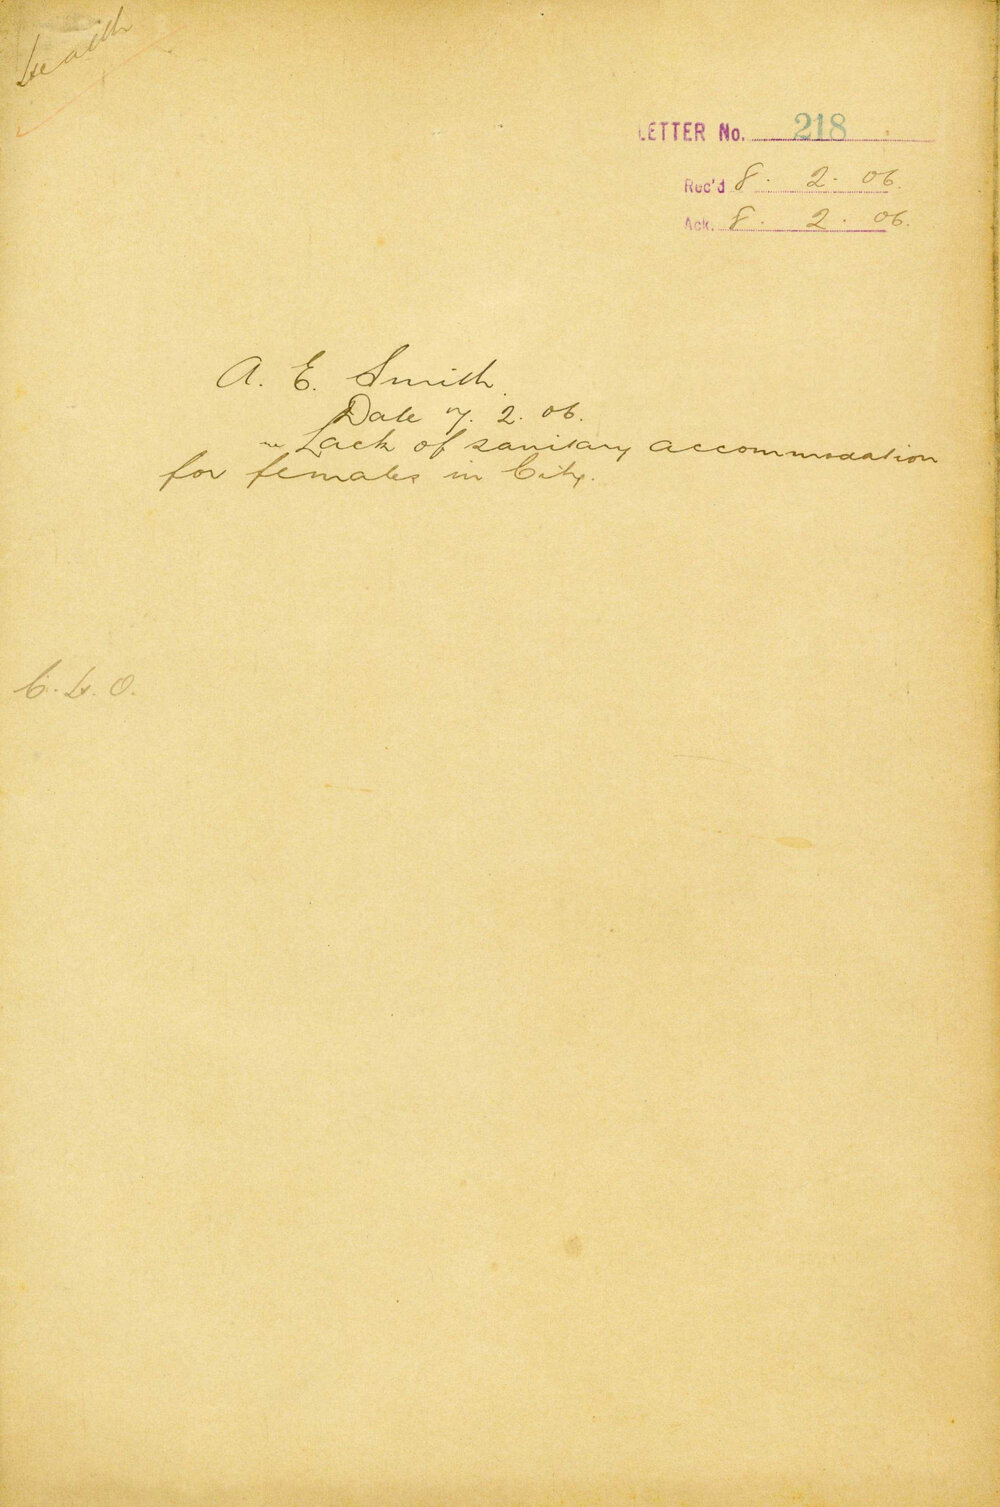 Health
LETTER No. 218
Rec'd 8. 2. 06.
Ack. 8. 2. 06.
A. E. Smith.
Date 7. 2. 06.
re Lack of sanitary accommodation
for females in City.
C. H. O.